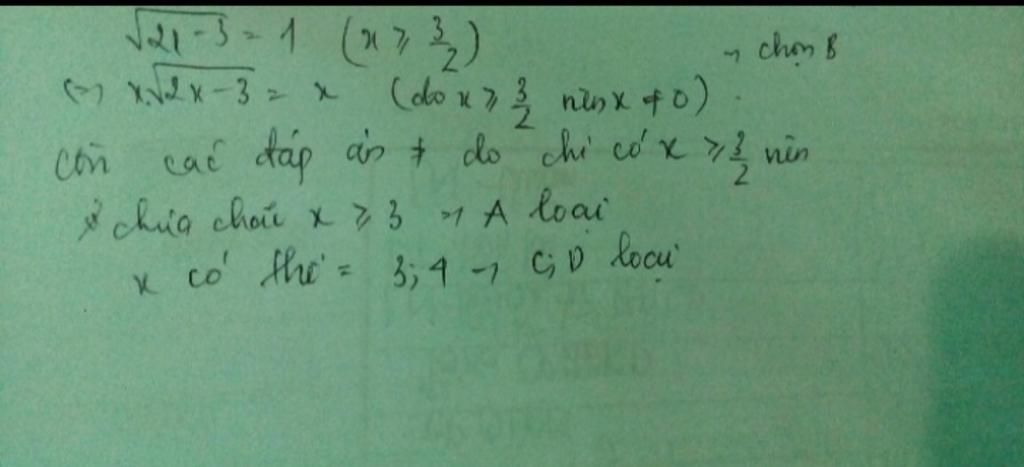 √2x-3 = 1 (x ≥ 3/2)
→ chọn B
<=> x√2x-3 = x (do x ≥ 3/2 nên x ≠ 0).
Còn các đáp án ≠ do chỉ có x ≥ 3/2 nên
chưa chắc x ≥ 3 → A loại
x có thể = 3; 4 → C; D loại